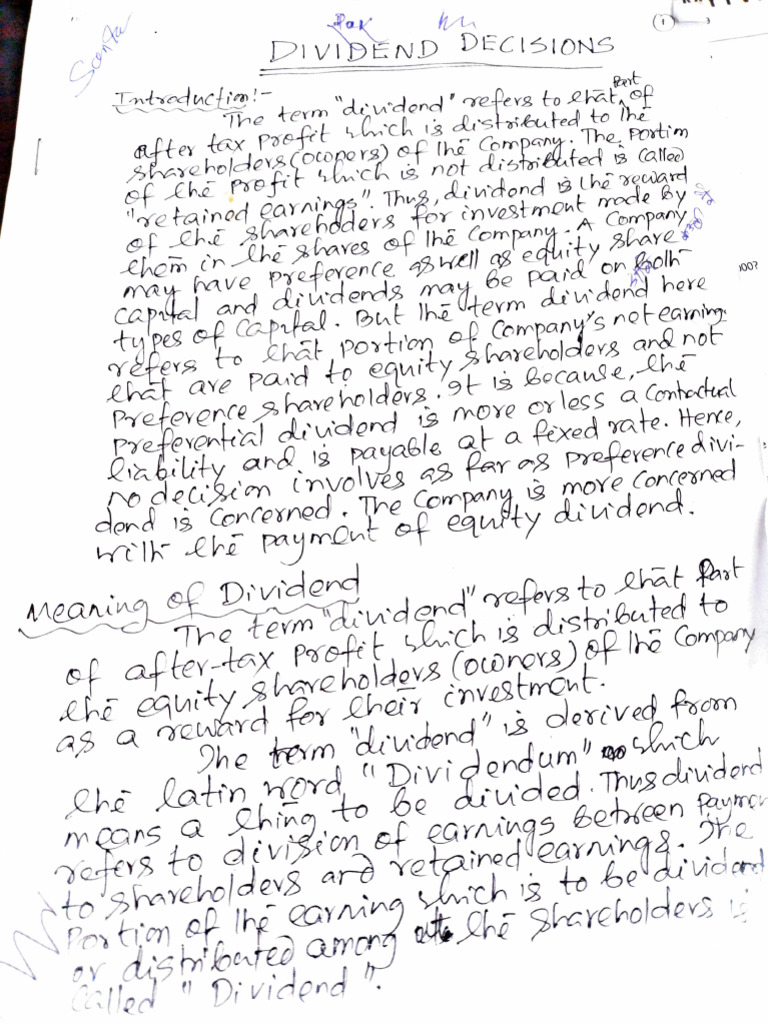 1
DIVIDEND DECISIONS
Introduction:-
The term "dividend" refers to that part of
after tax profit which is distributed to the
shareholders (owners) of the Company. The portion
of the profit which is not distributed is called
"retained earnings". Thus, dividend is the reward
of the shareholders for investment made by
them in the shares of the Company. A Company
may have preference as well as equity share
capital and dividends may be paid on both
100?
types of capital. But the term dividend here
refers to that portion of Company's net earning.
that are paid to equity shareholders and not
preference shareholders. It is because, the
preferential dividend is more or less a contractual
liability and is payable at a fixed rate. Hence,
no decision involves as far as preference divi-
dend is concerned. The company is more concerned
with the payment of equity dividend.
Meaning of Dividend
The term "dividend" refers to that part
of after-tax profit which is distributed to
the equity shareholders (owners) of the Company
as a reward for their investment.
The term "dividend" is derived from
the latin word "Dividendum" which
means a thing to be divided. Thus dividend
refers to division of earnings between paymen
to shareholders and retained earnings. The
Portion of the earning which is to be dividend
or distributed among the shareholders is
called "Dividend".